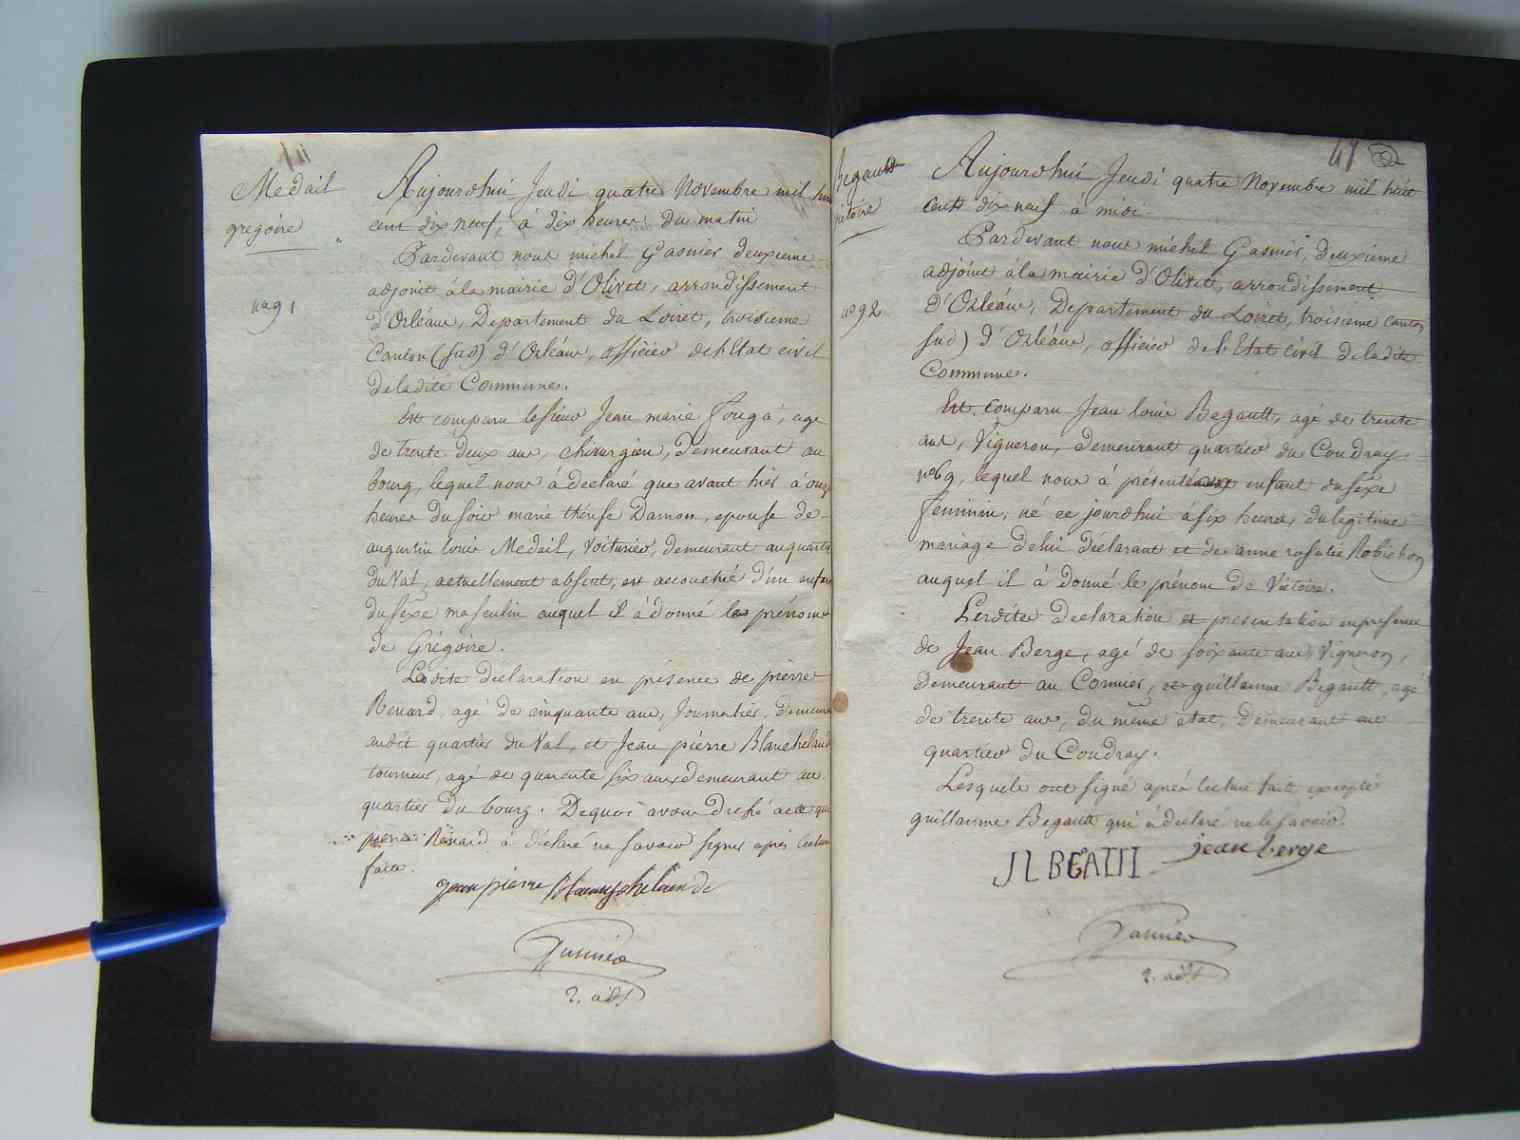 Medail
grégoire
no 91
Aujourdhui Jeudi quatre Novembre mil huit
cent dix neuf, à dix heures du matin
Pardevant nous michel Gasnier deuxieme
adjoint à la mairie d'Olivet, arrondissement
d'Orléans, Departement du Loiret, troisieme
Canton (sud) d'Orléans, officier de l'Etat civil
de la dite Commune.
Est comparu le sieur Jean marie Fougà, age
de trente deux ans, chirurgien, demeurant au
bourg, lequel nous à declaré que avant hier à onze
heures du soir marie thérese Damon, epouse de
augustin louis Medail, voiturier, demeurant au quartier
du Val, actuellement absent, est accouchée d'un enfant
du sexe masculin auquel il à donné le prénom
de Grégoire.
La dite declaration en présence de pierre
Renard, agé de cinquante ans, Journalier, demeurant
audit quartier du Val, et Jean pierre Blanchelande
tourneur, agé de quarente six ans demeurant au
quartier du bourg. De quoi avons dressé acte que
pierre Renard à déclaré ne savoir signer après lecture
faite.
jean pierre Blanchelande
Gasnier
2. adj
41
Begault
Victoire
no 92
Aujourdhui Jeudi quatre Novembre mil huit
cent dix neuf à midi
Pardevant nous michel Gasnier, deuxieme
adjoint à la mairie d'Olivet, arrondissement
d'Orléans, Departement du Loiret, troisieme canton
sud) d'Orléans, officier de l'Etat civil de la dite
Commune.
Est comparu Jean louis Begault, agé de trente
ans, Vigneron, demeurant quartier du Coudray
no 69, lequel nous à présenté enfant du sexe
feminin, né ce jourdhui à six heures, du legitime
mariage de lui declarant et de anne rosalie Robichon
auquel il à donné le prénom de Victoire.
Lesdites declaration et presentation en presence
de Jean Berge, agé de soixante ans, Vigneron,
demeurant au Comuer, et guillaume Begault, agé
de trente ans, du même état, demeurant au
quartier du Coudray.
Lesquels ont signé après lecture faite excepté
guillaume Begault qui à declaré ne le savoir.
JL BEATTI jean berge
Gasnier
2. adj